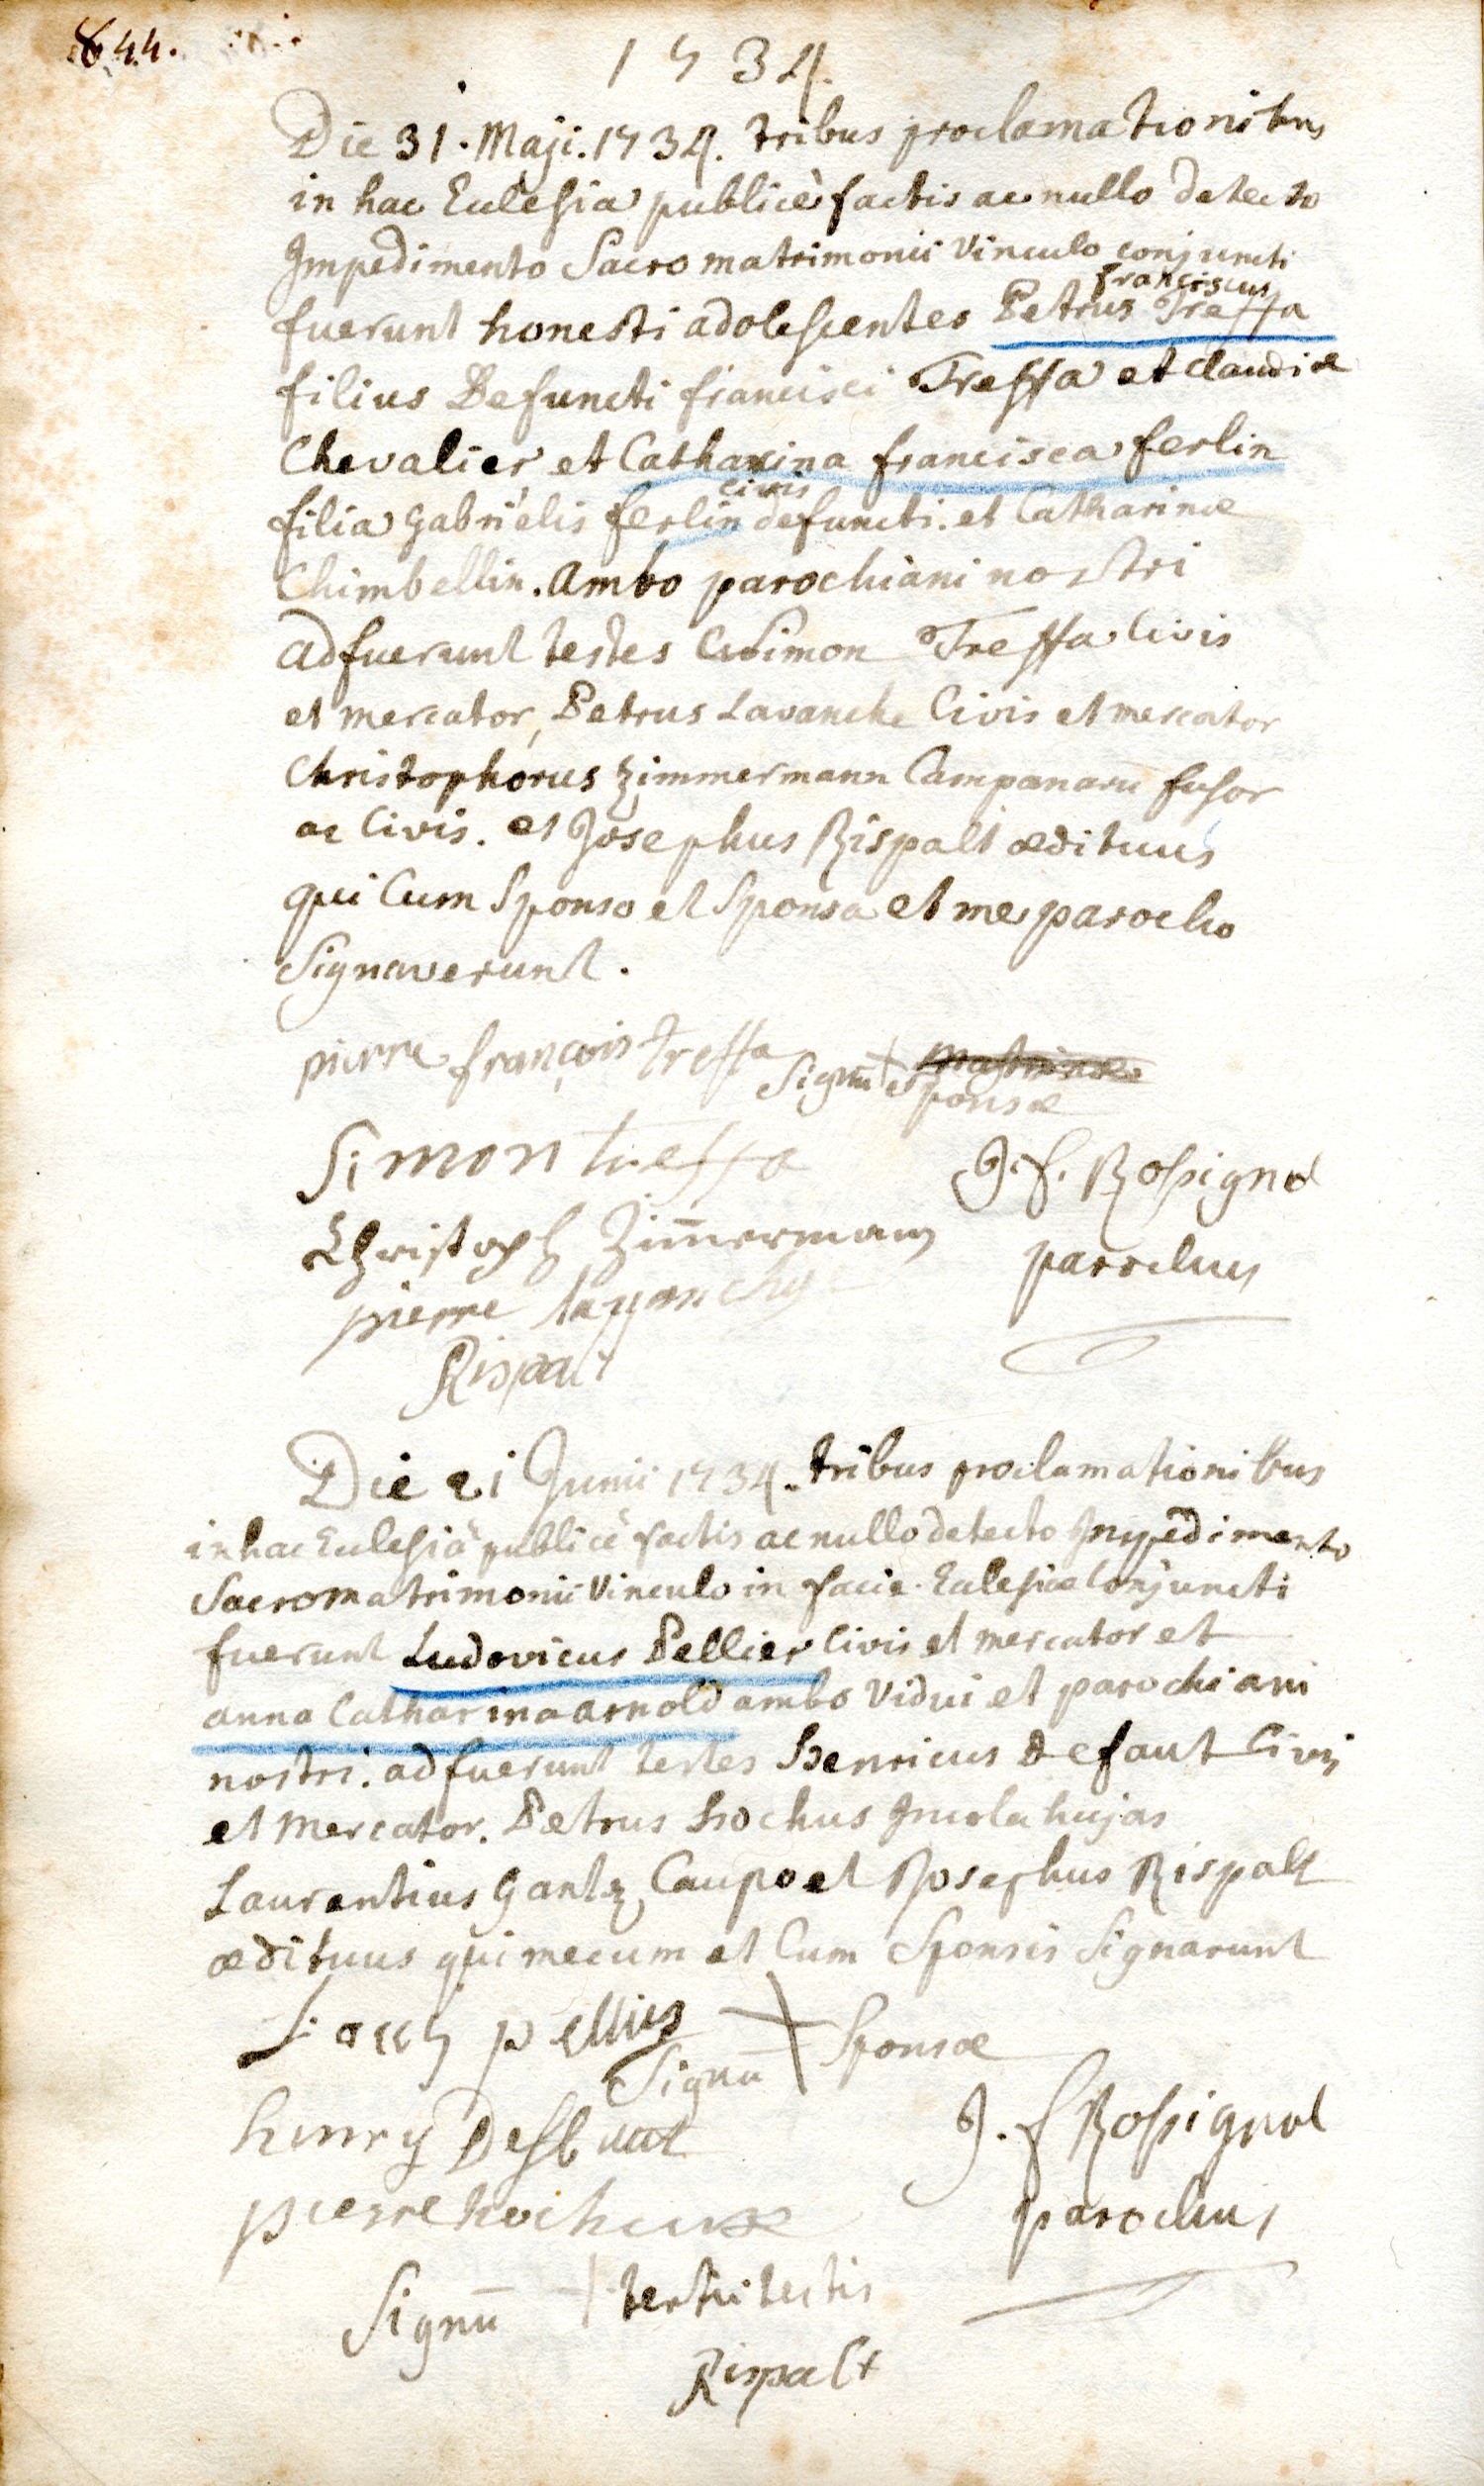 844.
1734.
Die 31. Maji. 1734. tribus proclamationibus
in hac Eclesia publicè factis ac nullo detecto
Impedimento Sacro matrimonii Vinculo conjuncti
franciscus
fuerunt honesti adolescentes Petrus Treffa
filius Defuncti francisci Treffa et Claudiæ
Chevalier et Catharina francisca ferlin
civis
filia gabriëlis ferlin defuncti. et Catharinæ
Chimbellin. ambo parochiani nostri
adfuerunt testes Simon Treffa Civis
et mercator, Petrus Lavanche Civis et mercator
Christophorus Zimmermann Campanaru fusor
ac Civis. et Josephus Rispalt ædituus
qui Cum Sponso et Sponsa et me parocho
Signaverunt.
pierre françois treffa
Signū + sponsæ
Simon treffa
J. f. Rossignol
Christoph Zim̄ermann
parochus
pierre
Rispalt
Die 21 Junii 1734. tribus proclamationibus
in hac Eclesiâ publicè factis ac nullo detecto Impedimento
Sacro matrimonii Vinculo in facie Eclesiæ Conjuncti
fuerunt Ludovicus Pellier Civis et mercator et
anna Catharina arnold ambo Vidui et parochiani
nostri. adfuerunt testes Henricus Defaut Civis
et mercator. Petrus Hochus Incola hujas
Laurentius gantz Caupo et Josephus Rispalt
ædituus qui mecum et Cum Sponsis Signarunt
pellier
Signū + Sponsæ
henry
J. f Rossignol
pierre
parochus
Signū + tertii testis
Rispalt